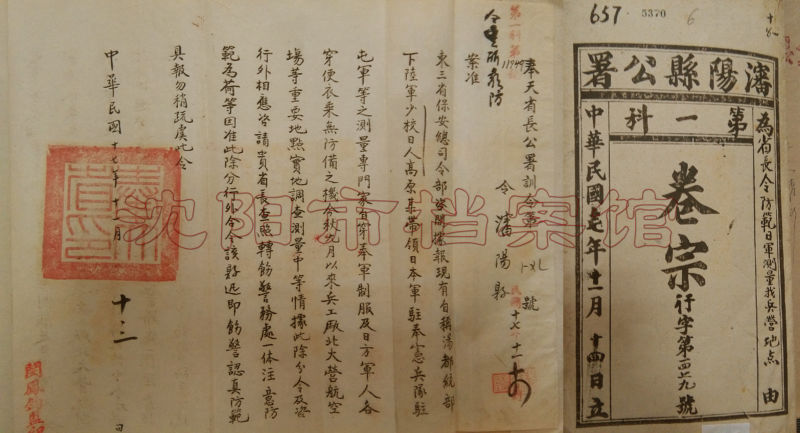 657
5370
6
瀋陽縣公署
第一科
為省長令防範日軍測量我兵營地点由
卷宗
行字第四七九號
中華民國十七年十一月十四日立
奉天省長公署訓令第
號
令瀋陽縣
案准
東三省保安總司令部咨開據報現有自稱湯都統部
下陸軍少校日人高原某帶領日本軍駐奉憲兵隊駐
屯軍等之測量專門家百等奉軍制服及日方軍人各
穿便衣乘無防備之機今秋九月以來兵工廠北大營航空
場等重要地點實地調查測量中等情據此除分令及咨
行外相應咨請貴省長查照轉飭警務處一体注意防
範為荷等因准此除分行外合令該縣迅即飭警認真防範
具報勿稍疏虞此令
中華民國十七年十一月
十三
日
沈阳市档案馆